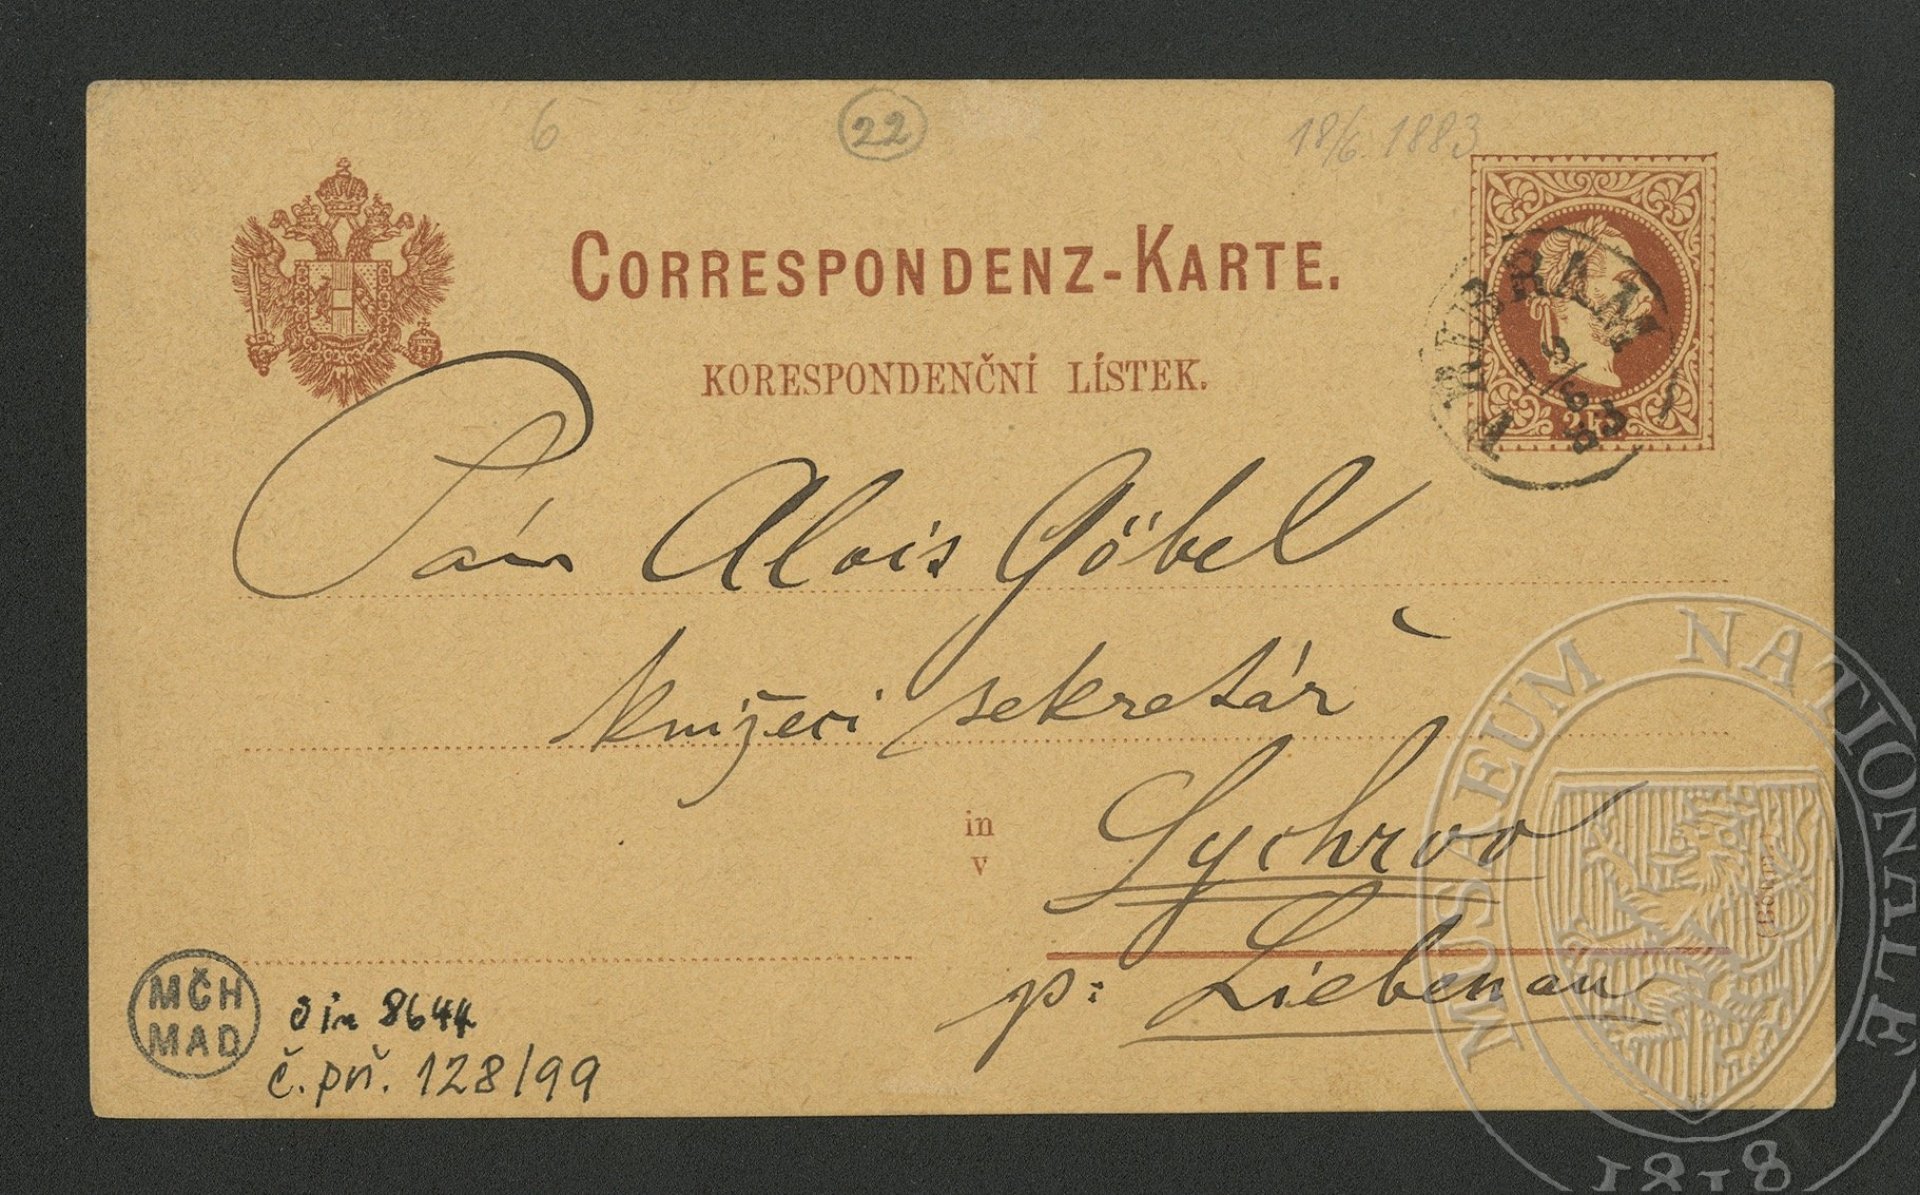 6
22
18/6 1883
CORRESPONDENZ-KARTE.
KORESPONDENČNÍ LÍSTEK.
PŘIBRAM
83
Pán Alois Göbel
knížecí sekretář
in
v
Sychrov
p: Liebenau
(Böhm.)
MČH
MAD
8644
č. př. 128/99
MUSAEUM NATIONALE
1818